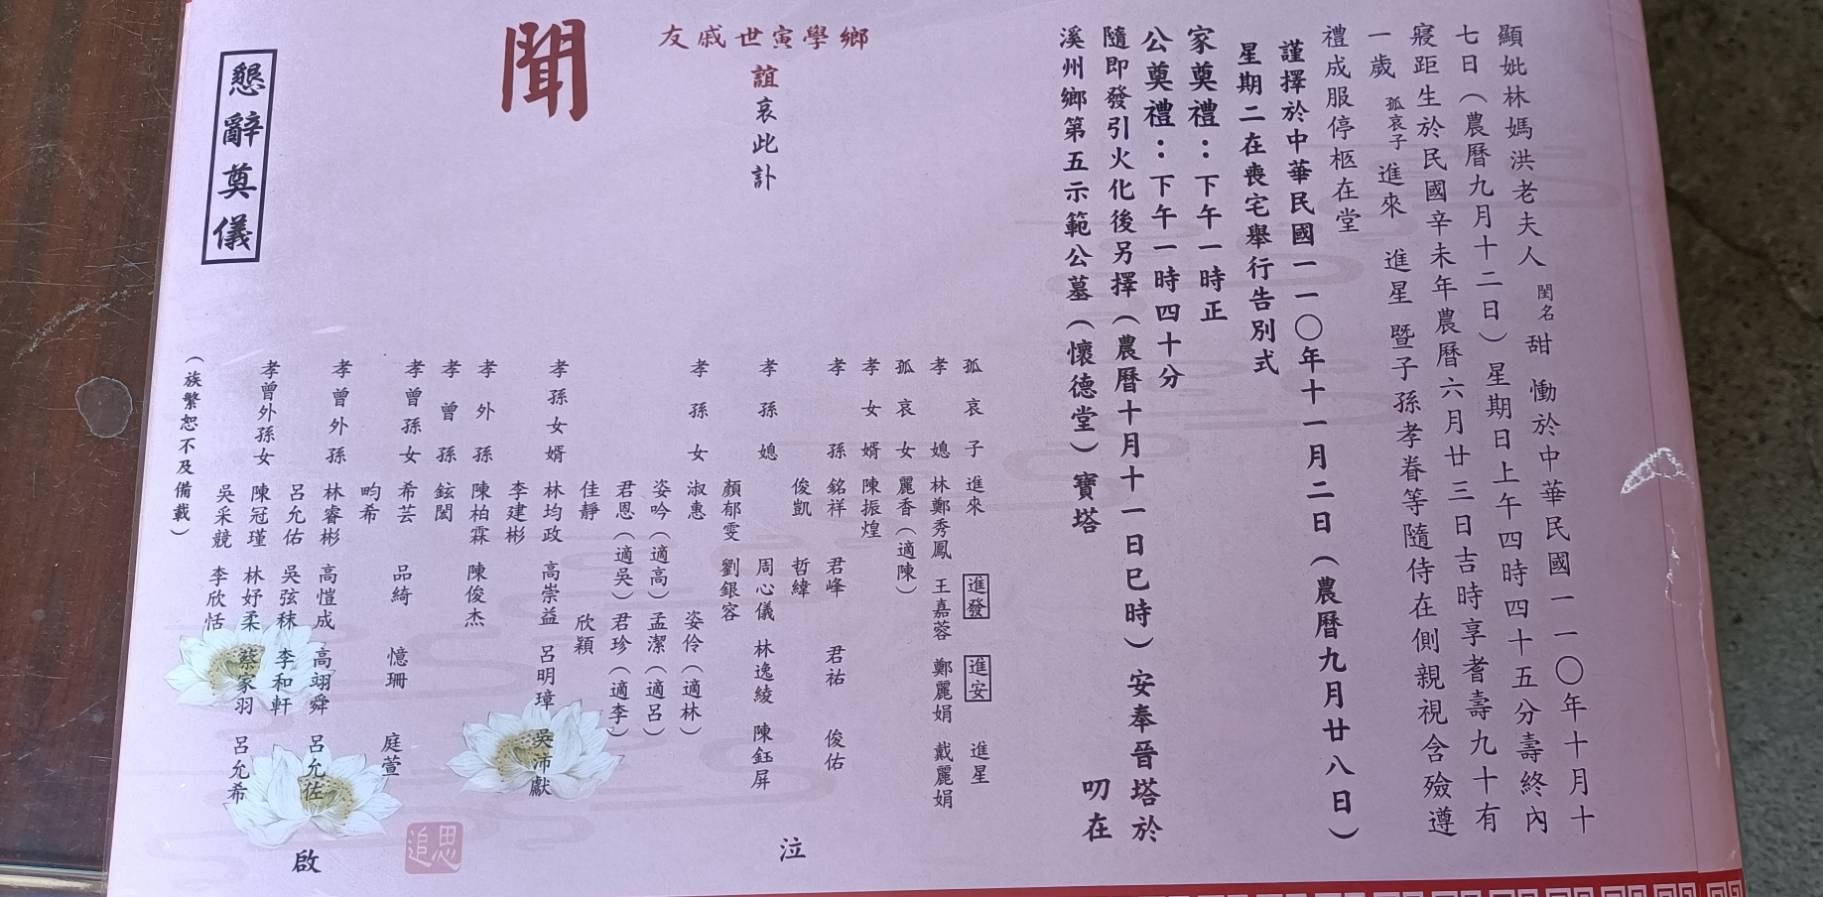 顯妣林媽洪老夫人 閨名 甜 慟於中華民國一一〇年十月十
七日（農曆九月十二日）星期日上午四時四十五分壽終內
寢距生於民國辛未年農曆六月廿三日吉時享耆壽九十有
一歲 孤哀子 進來 進星 暨子孫孝眷等隨侍在側親視含殮遵
禮成服停柩在堂
謹擇於中華民國一一〇年十一月二日（農曆九月廿八日）
星期二在喪宅舉行告別式
家奠禮：下午一時正
公奠禮：下午一時四十分
隨即發引火化後另擇（農曆十月十一日巳時）安奉晉塔於
溪州鄉第五示範公墓（懷德堂）寶塔
叨在
鄉學寅世戚友
誼哀此訃
聞
孤哀子 進來 進發 進安 進星
孝媳 林鄭秀鳳 王嘉蓉 鄭麗娟 戴麗娟
孤哀女 麗香（適陳）
孝女婿 陳振煌
孝孫 銘祥 君峰 君祐 俊佑
俊凱 哲緯
孝孫媳 周心儀 林逸綾 陳鈺屏
顏郁雯 劉銀容
孝孫女 淑惠 姿伶（適林）
姿吟（適高）孟潔（適呂）
君恩（適吳）君珍（適李）
佳靜 欣穎
孝孫女婿 林均政 高崇益 呂明璋 吳沛獻
李建彬
孝外孫 陳柏霖 陳俊杰
孝曾孫 鉉閎
孝曾孫女 希芸 品綺 憶珊 庭萱
畇希
孝曾外孫 林睿彬 高愷成 高翊舜 呂允佐
呂允佑 吳弦秣 李和軒
孝曾外孫女 陳冠瑾 林妤柔 蔡家羽 呂允希
吳采競 李欣恬
（族繁恕不及備載）
泣
啟
懇辭奠儀
追思